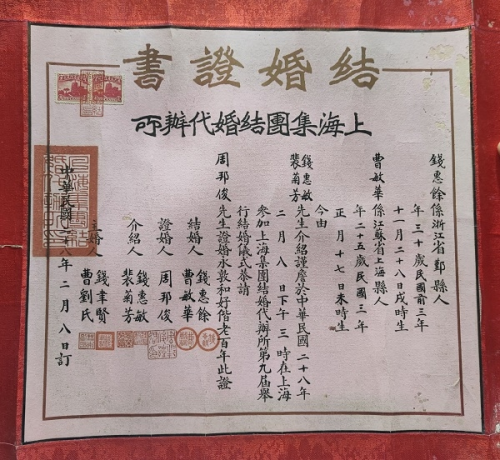 結婚證書
上海集團結婚代辦所
錢惠餘係浙江省鄞縣人
年三十歲民國前三年
十一月二十八日戌時生
曹敏華係江蘇省上海縣人
年二十五歲民國三年
正月十七日未時生
今由
錢惠敏
裴菊芳
先生介紹謹詹於中華民國二十八年
二月八日下午三時在上海
參加上海集團結婚代辦所第九屆舉
行結婚儀式恭請
周邦俊先生證婚永敦和好偕老百年此證
結婚人
錢惠餘
曹敏華
證婚人
周邦俊
介紹人
錢惠敏
裴菊芳
主婚人
錢聿賢
曹劉氏
中華民國二十八年二月八日訂